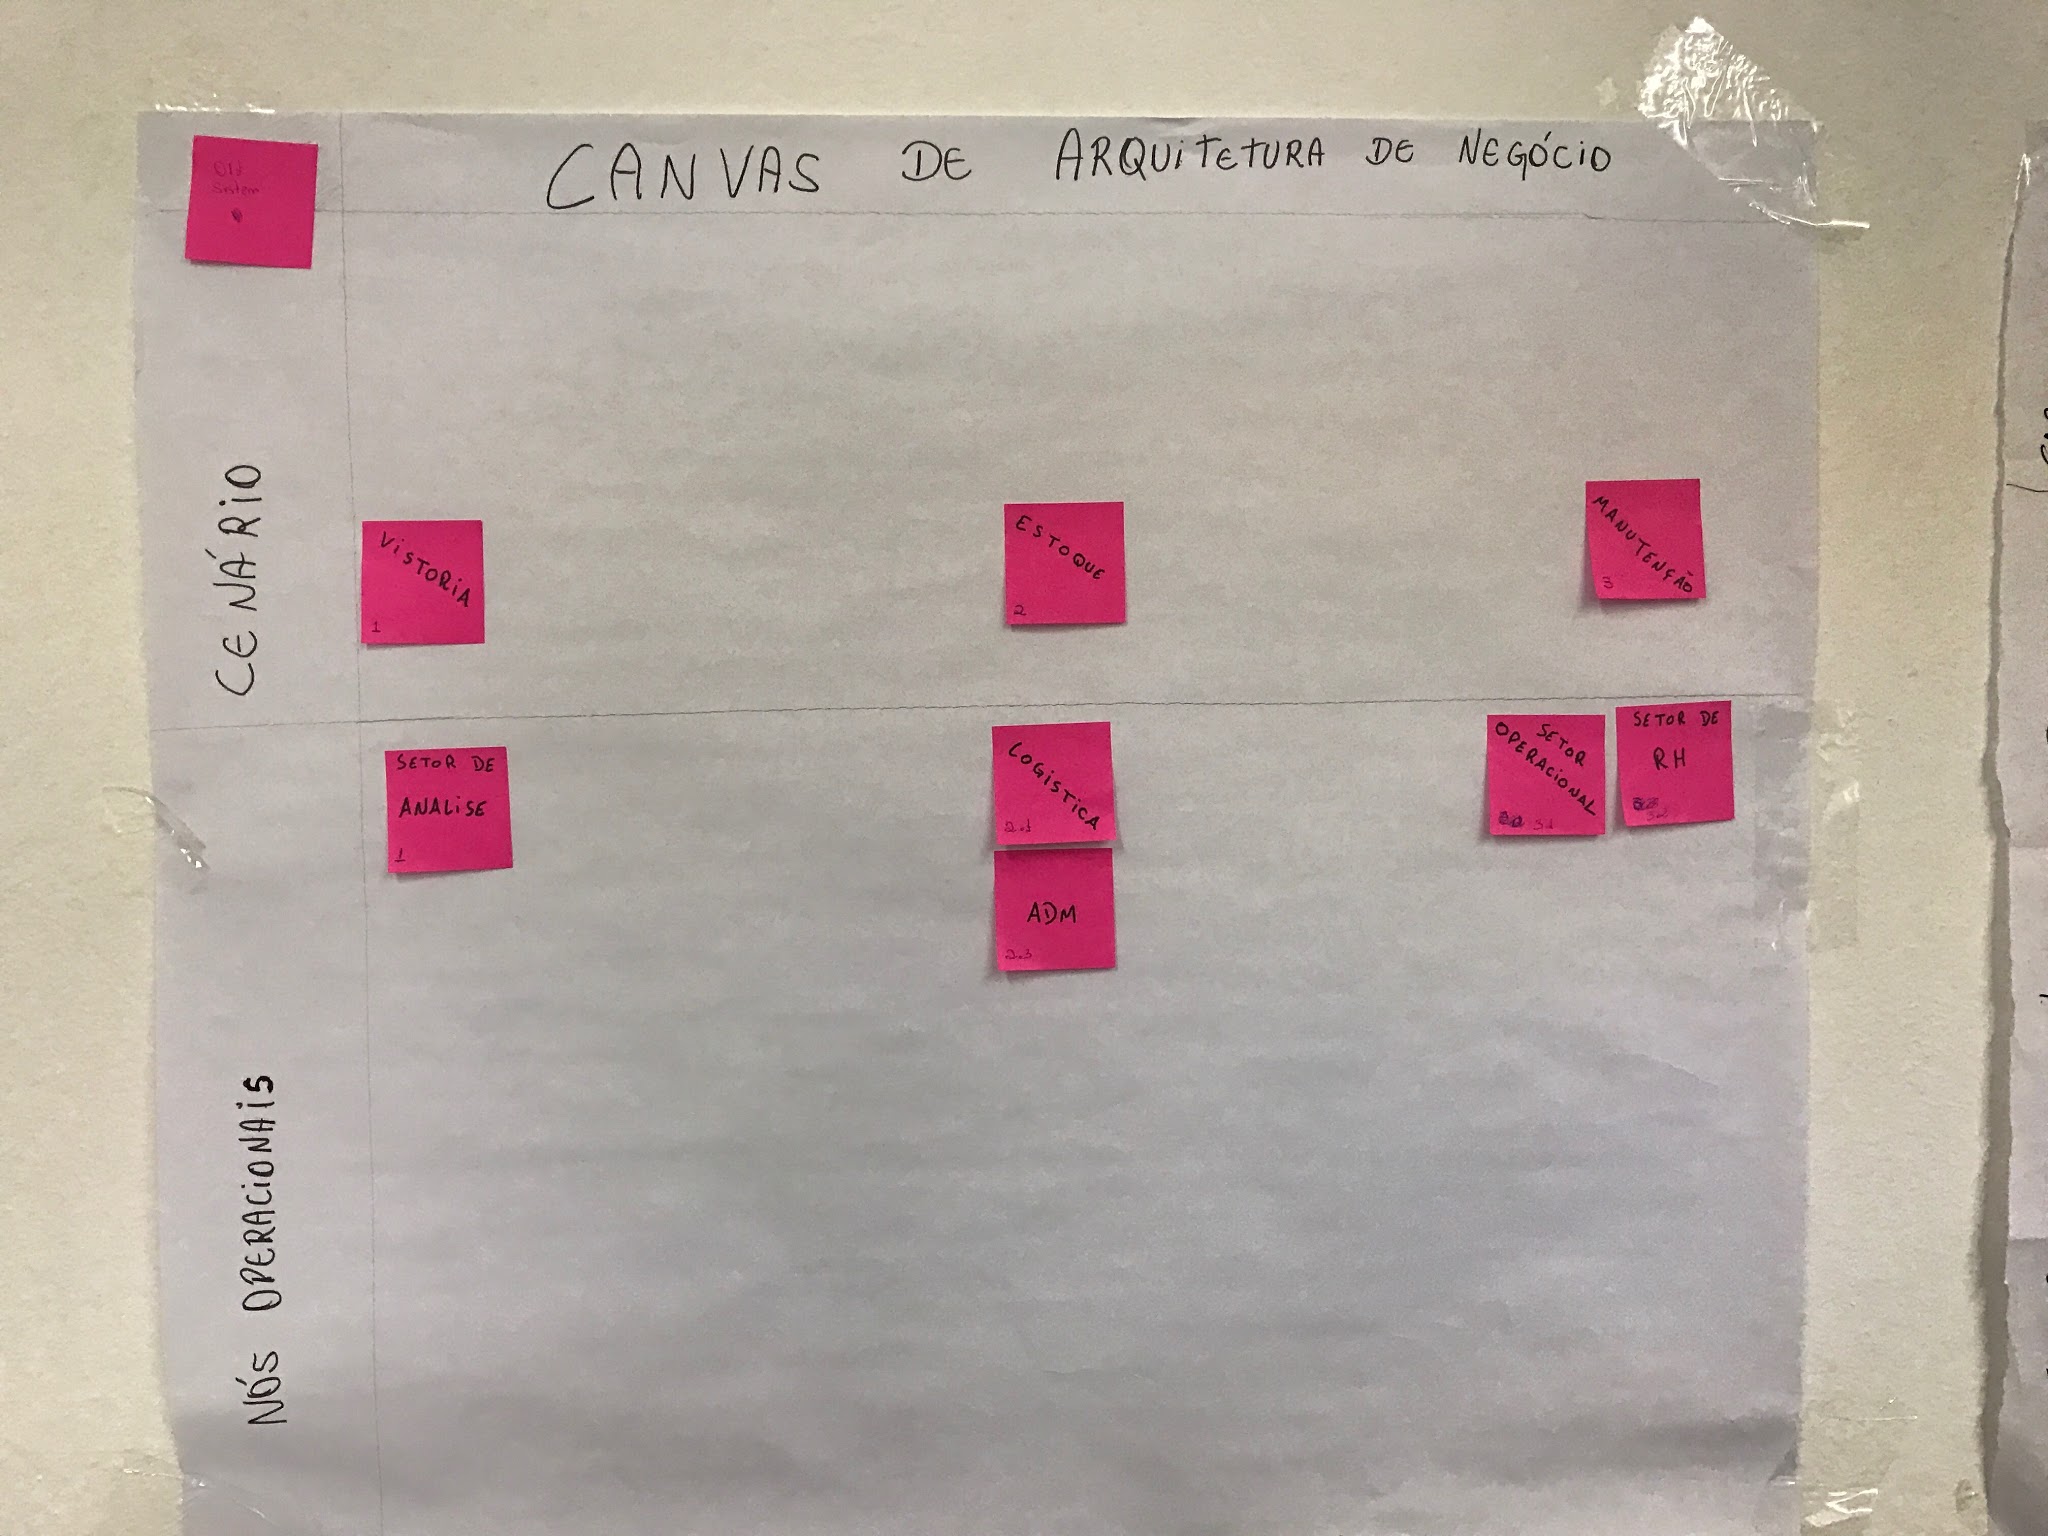 Old
Sistem
CANVAS DE ARQUITETURA DE NEGÓCIO
CENÁRIO
VISTORIA
1
ESTOQUE
2
MANUTENÇÃO
3
NÓS OPERACIONAIS
SETOR DE
ANALISE
1
LOGISTICA
2.1
ADM
SETOR
OPERACIONAL
3.1
SETOR DE
RH
3.2